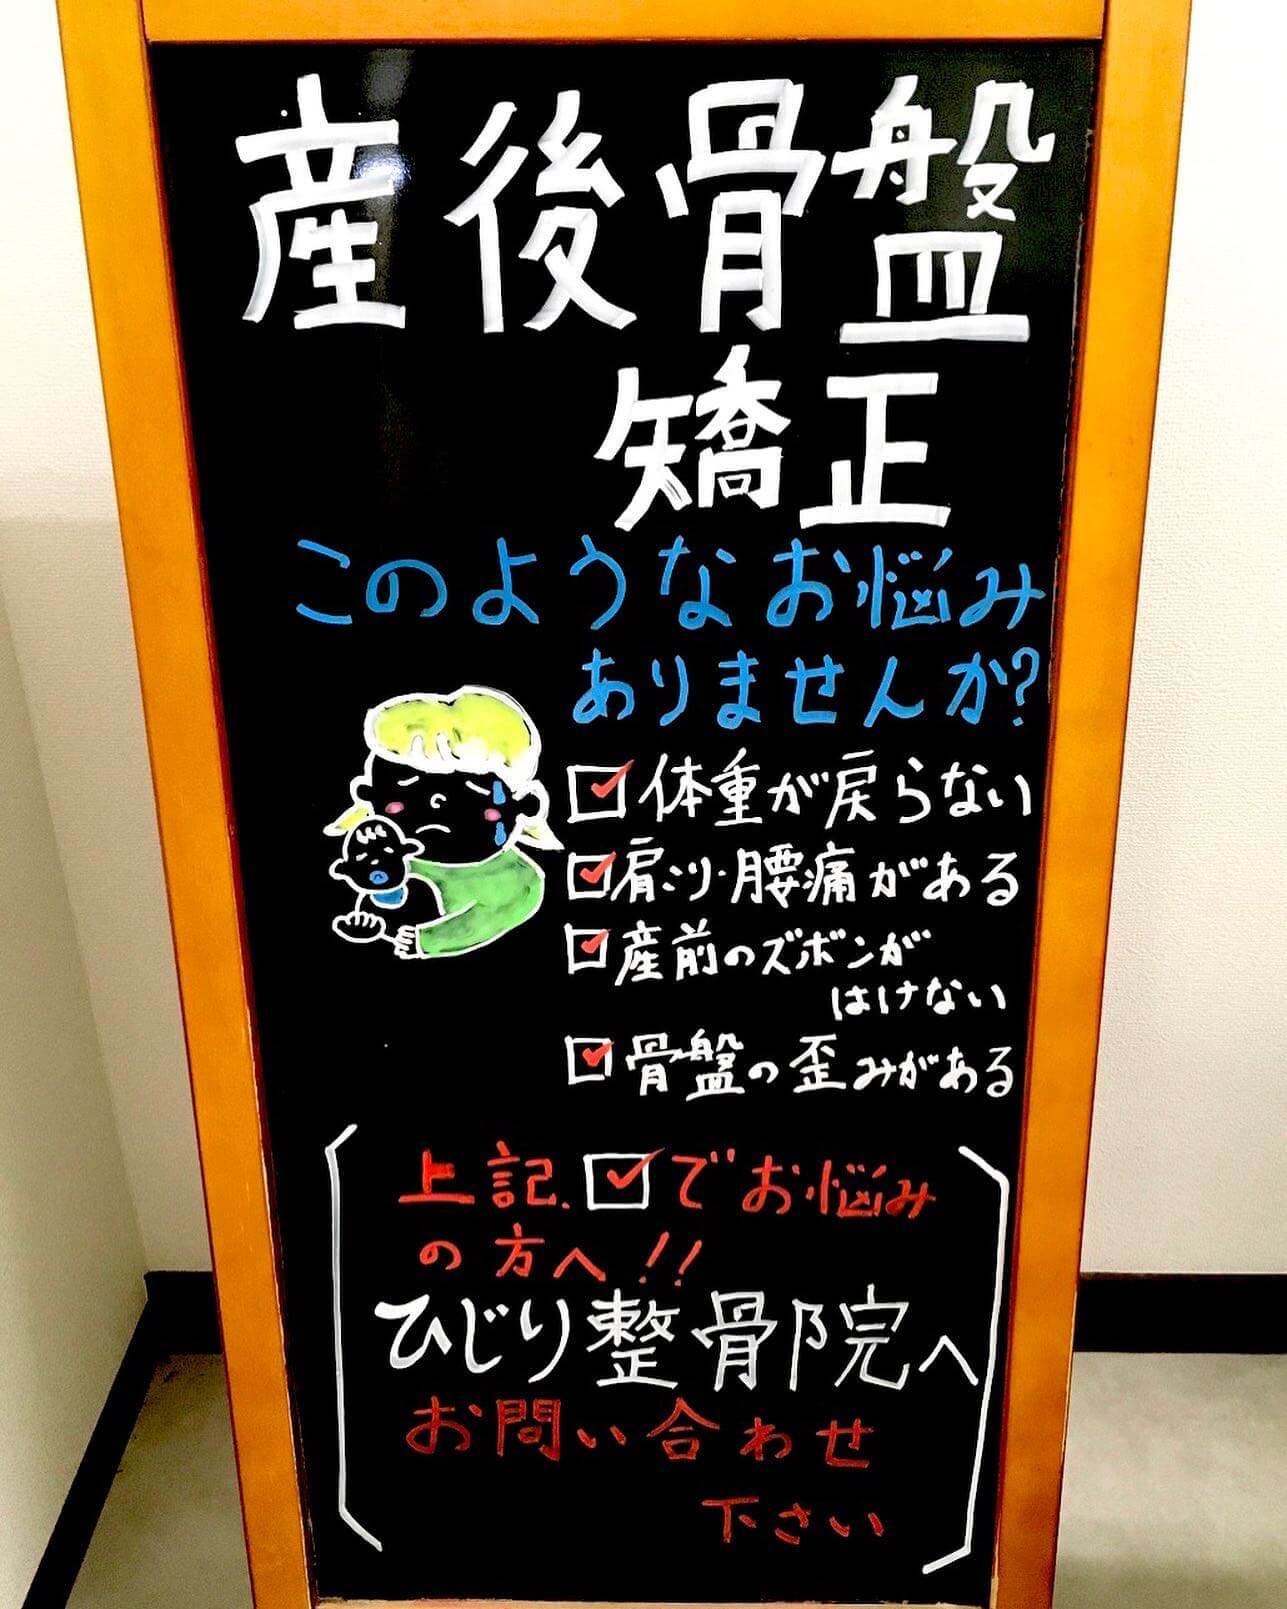 産後骨盤
矯正
このようなお悩み
ありませんか?
体重が戻らない
肩こり・腰痛がある
産前のズボンが
はけない
骨盤の歪みがある
上記、☑でお悩み
の方へ!!
ひじり整骨院へ
お問い合わせ
下さい